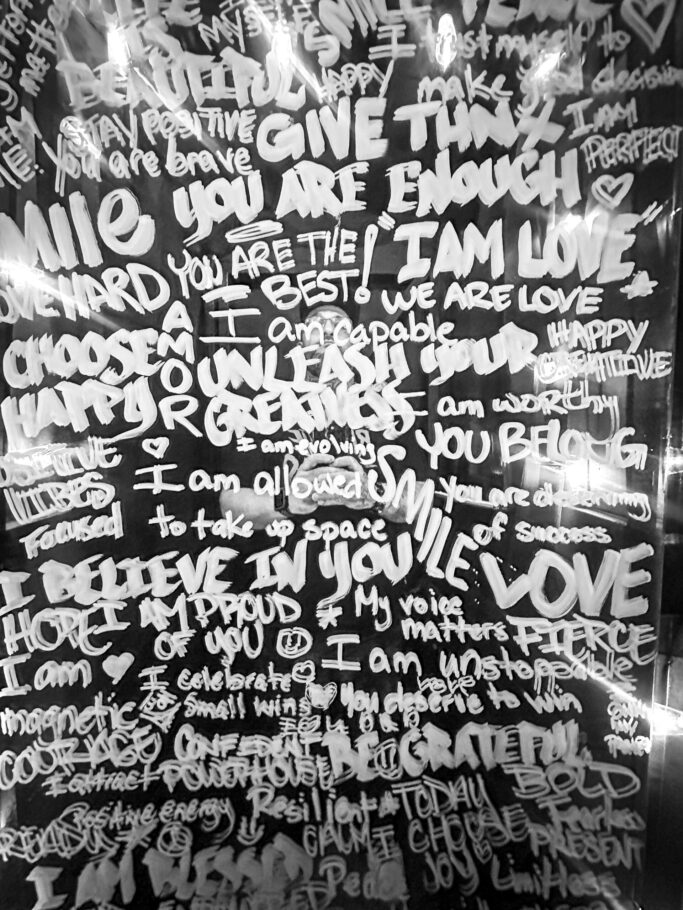 SMILE
MYSELF
I trust myself to
BEAUTIFUL HAPPY make good decisions
STAY POSITIVE GIVE THNX I AM
PERFECT
You are brave
YOU ARE ENOUGH
SMILE
YOU ARE THE BEST! "I AM LOVE"
LOVE HARD AMOR I WE ARE LOVE
I am capable HAPPY
CHOOSE UNLEASH YOUR CREATIVE
HAPPY GREATNESS I am worthy
I am evolving YOU BELONG
POSITIVE
VIBES I am allowed SMILE You are deserving
Focused to take up space of success
I BELIEVE IN YOU LOVE
HOPE I AM PROUD My voice
OF YOU matters FIERCE
I am I am unstoppable
I celebrate
magnetic small wins you deserve to win
COURAGE CONFIDENT BE GRATEFUL
I attract POWERHOUSE BOLD
Positive energy Resilient TODAY
CALM I CHOOSE PRESENT
I AM BLESSED JOY Limitless